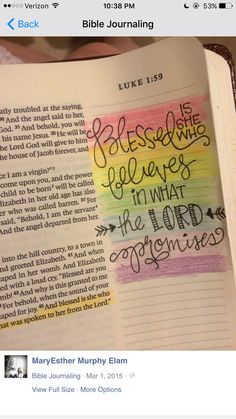 Verizon 10:38 PM 53%
Back Bible Journaling
LUKE 1:59
atly troubled at the saying,
30 And the angel said to her,
God. 31 And behold, you will
his name Jesus. 32 He will be
he Lord God will give to him
he house of Jacob forever, and
ce I am a virgin?"
come upon you, and the power
child to be born will be called
Elizabeth in her old age has also
er who was called barren. 37 For
said, "Behold, I am the servant
And the angel departed from her.
into the hill country, to a town in
and greeted Elizabeth. 41 And when
eaped in her womb. And Elizabeth
ed with a loud cry, "Blessed are you
mb! 43 And why is this granted to me
For behold, when the sound of your
aped for joy. 45 And blessed is she who
hat was spoken to her from the Lord."
Blessed IS SHE WHO
believes
IN WHAT
the LORD
promises
MaryEsther Murphy Elam
Bible Journaling · Mar 1, 2015 ·
View Full Size · More Options